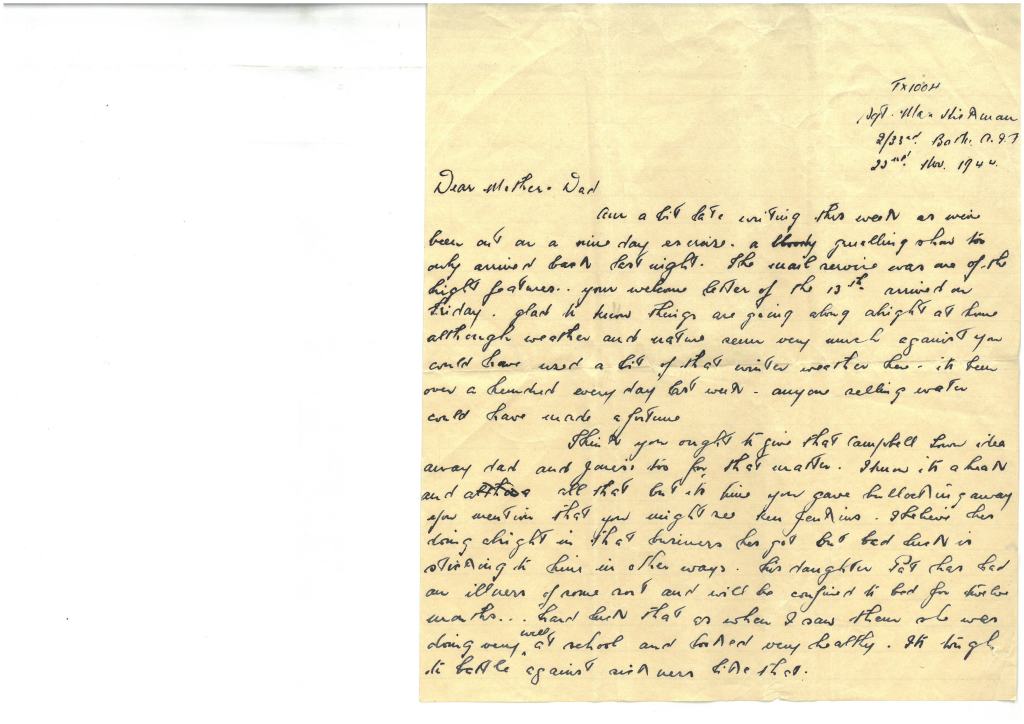 TX1004
Sgt. Max Hickman
2/33rd Batt. A.I.F
22nd. Nov. 1944.
Dear Mother & Dad
Am a bit late writing this week as weve
been out on a nine day exercise. a bloody gruelling show too
only arrived back last night. The mail service was one of the
bright features.. your welcome letter of the 13th arrived on
Friday. glad to know things are going along alright at home
although weather and nature seem very much against you
could have used a bit of that winter weather here. its been
over a hundred every day last week. anyone selling water
could have made a fortune
Think you ought to give that Campbell Town idea
away dad and too for that matter. I know its a
and all that but its time you gave bullocking away
you mention that you might see Ken Jenkins. I believe hes
doing alright in that business hes got but bad luck is
sticking to him in other ways. his daughter Pat has had
an illness of some sort and will be confined to bed for twelve
months... hard luck that as when I saw them she was
doing very well at school and looked very healthy. Its tough
to battle against sickness like that.